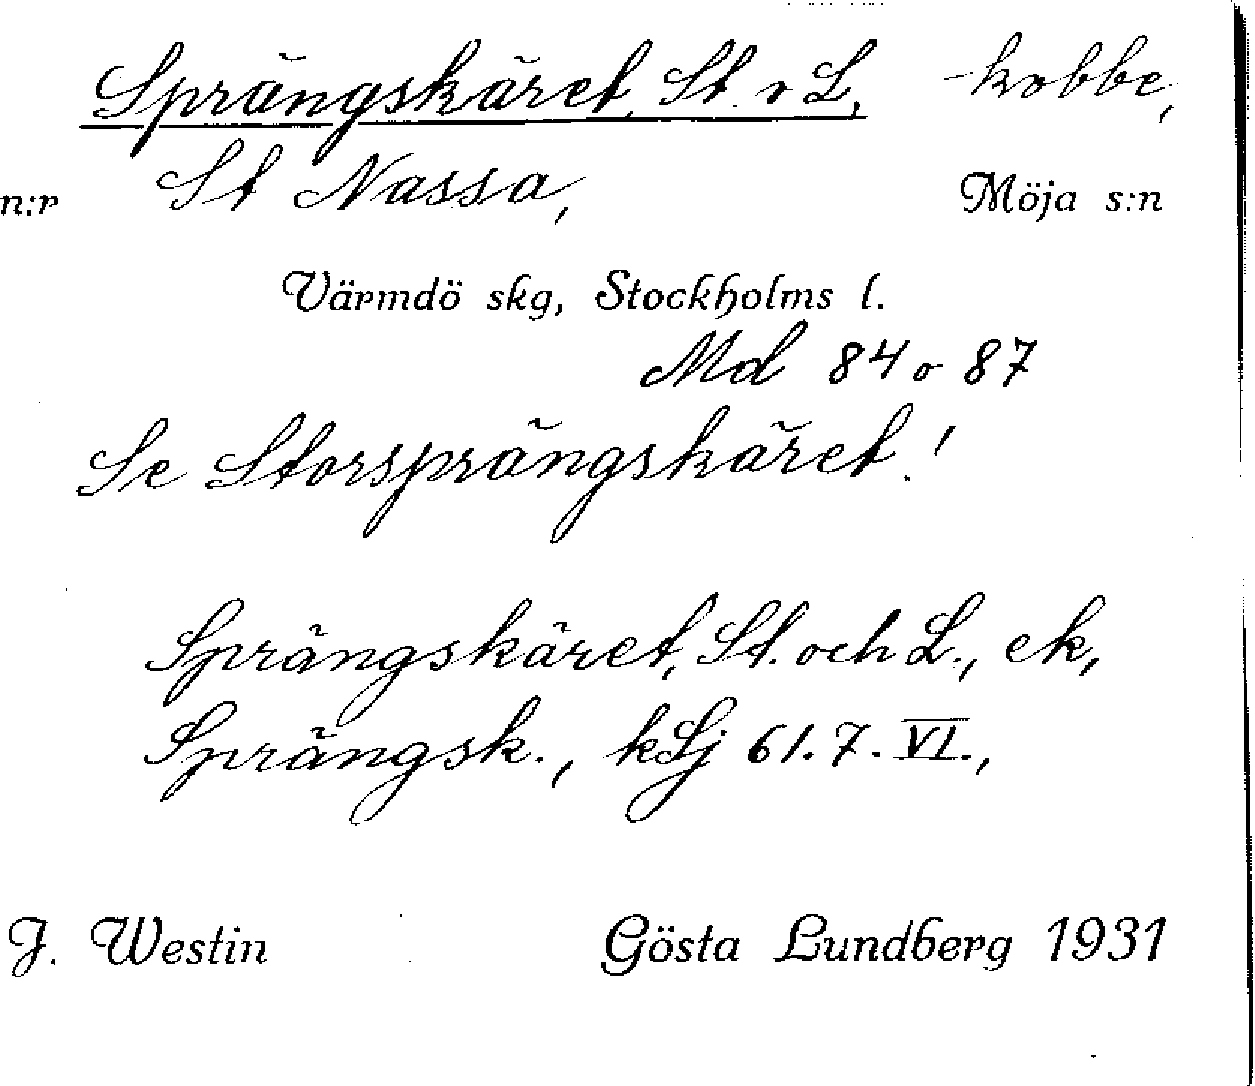 Sprängskäret, St. o L, -kobbe,
n:r St Nassa, Möja s:n
Värmdö skg, Stockholms l.
Md 84 o 87
Se Storsprängskäret!
Sprängskäret, St. och L., ek,
Sprängsk., kLj 61.7.VI.,
J. Westin Gösta Lundberg 1931